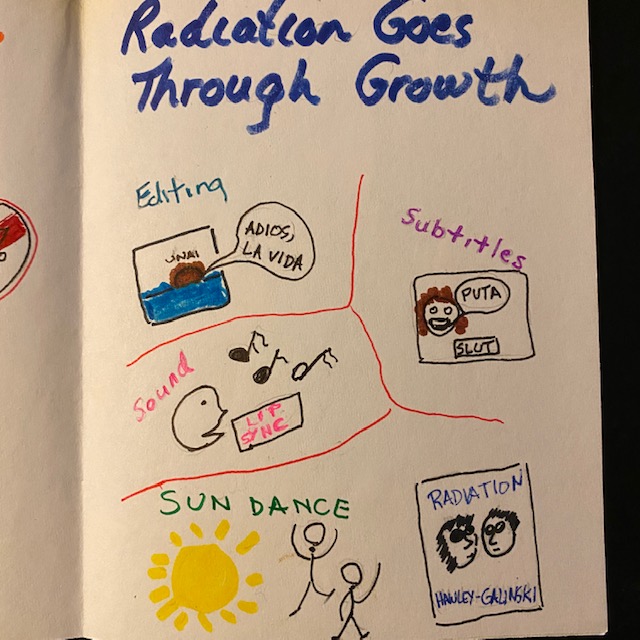 Radiation Goes
Through Growth
Editing
UNAI
ADIOS,
LA VIDA
Subtitles
PUTA
SLUT
Sound
LIP
SYNC
SUN DANCE
RADIATION
HAWLEY-GALINSKI